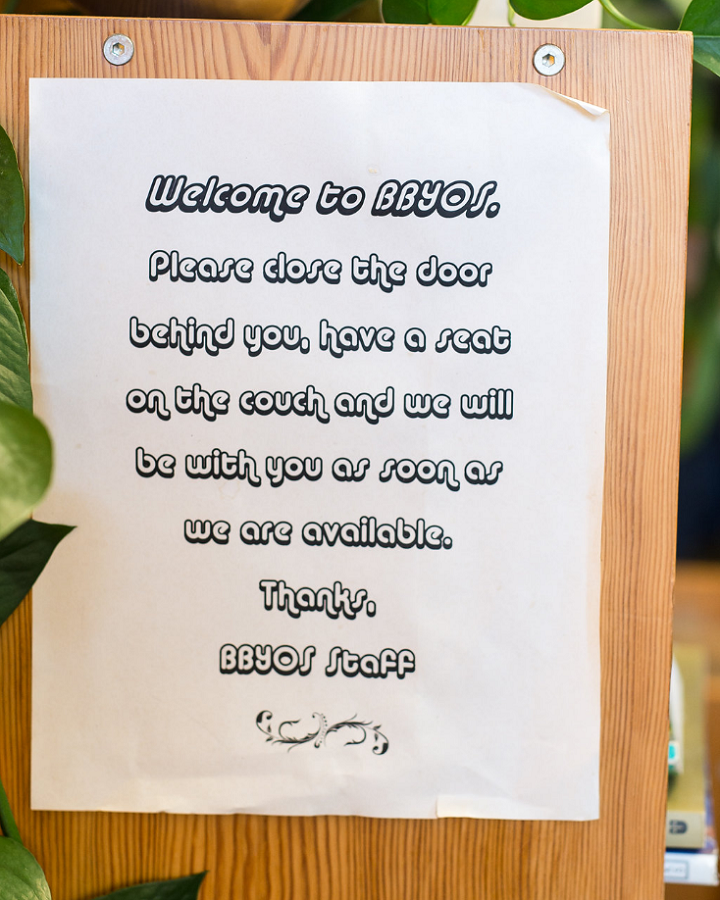 Welcome to BBYOS.
Please close the door
behind you, have a seat
on the couch and we will
be with you as soon as
we are available.
Thanks,
BBYOS Staff